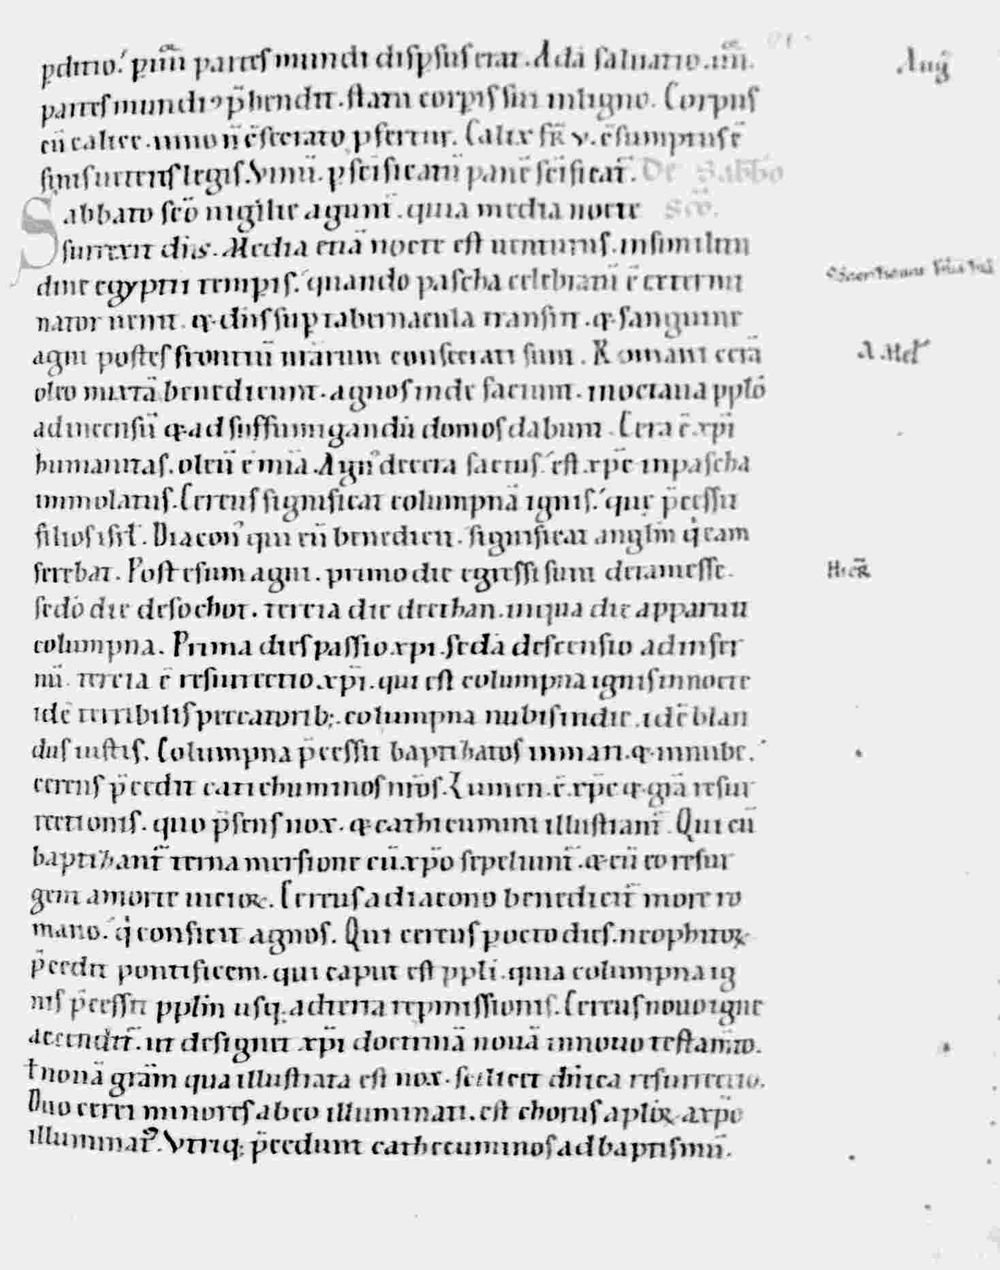 pditio. p iiii partes mundi dispsus erat. Adā saluatio .iiii. Aug
partes mundi p̄hendit. stant corpis sui in ligno. Corpus
cū calice. uino n̄ c̄secrato pfertur. Calix
surrexit dn̄s. Media etiā nocte est uenturus. in similitu
Sabbato scō uigilie agunt̄. quia media nocte De Sabbō scō.
dine egyptii tempis. quando pascha celebratū ē exter mi
nator uenit. & dn̄s sup tabernacula transiit. & sanguine
agni postes frontiū n̄rarum consecrati sunt. Romani cerā
oleo mixtā benedicunt. agnos inde faciunt. in octaua pplō
ad incensū & ad suffumigandū domos dabunt. Cera ē xp̄i
humanitas. oleū ē mīa. Agn᾽ de cera factus. est xp̄c in pascha
immolatus. Cereus significat columpnā ignis. que p̄cessit
filios isrl̄. Diacon᾽ qui eū benedicit. significat anglm̄ q̇ eam
ferebat. Post esum agni. primo die egressi sunt de ramesse.
sedō die de sochot. tercia die de ethan. in qua die apparuit
columpna. Prima dies passio xpi. sedā descensio ad infer
nū. tercia ē resurrectio xp̄i. qui est columpna ignis in nocte
idē terribilis peccatorib;. columpna nubis in die. idē blan
dus iustis. Columpna p̄cessit baptizatos in mari. & in nube.
cereus p̄cedit catichuminos nr̄os. Lumen .ē. xp̄c & grā resur
rectionis. quo p̄sens nox. & cathicumini illustrant̄. Qui cū
baptizant̄ trina mersione cū xp̄o sepeliunt̄. & cū eo resur
gent a morte
Cereus a diacono benedicit̄ more ro
mano. q̇ conficit agnos. Qui cereus p octo dies. neophitoꝝ
p̄cedit pontificem. qui caput est ppli. quia columpna ig
nis p̄cessit pplm̄ usq; ad terrā repmissionis. Cereus nouo igne
accendit̄. ut designet xp̄i doctrinā nouā in nouo testam̄to.
nouā grām qua illustrata est nox. scilicet dn̄ica resurrectio.
Duo cerei minores ab eo illuminati. est chorus aplōꝝ a xpō
illuminat᾽. Vtriq; p̄cedunt cathecuminos ad baptismū.